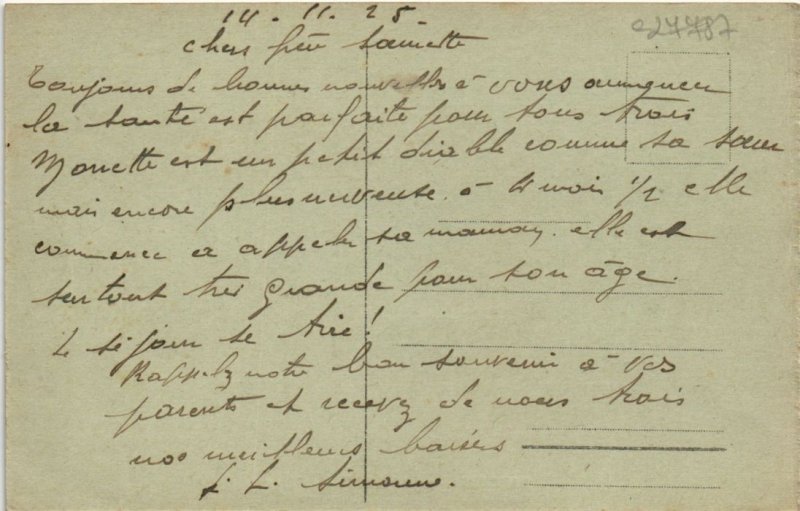 14.11.25
e27787
chers
Toujours de bonnes nouvelles à vous annoncer
la santé est parfaite pour tous trois
est un petit diable comme sa sœur
mais encore plus nerveuse. à 4 mois 1/2 elle
commence a appeler sa maman. elle est
surtout très grande pour son âge.
L séjour se tire!
Rappelez notre bon souvenir à vos
parents et recevez de nous trois
nos meilleurs baisers